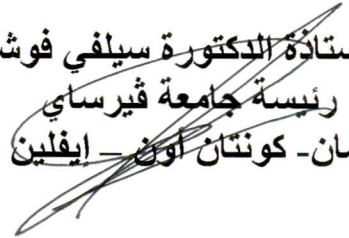 ستاذة الدكتورة سيلفي فوش
رئيسة جامعة ڤيرساي
ان- كونتان أون – إيفلين